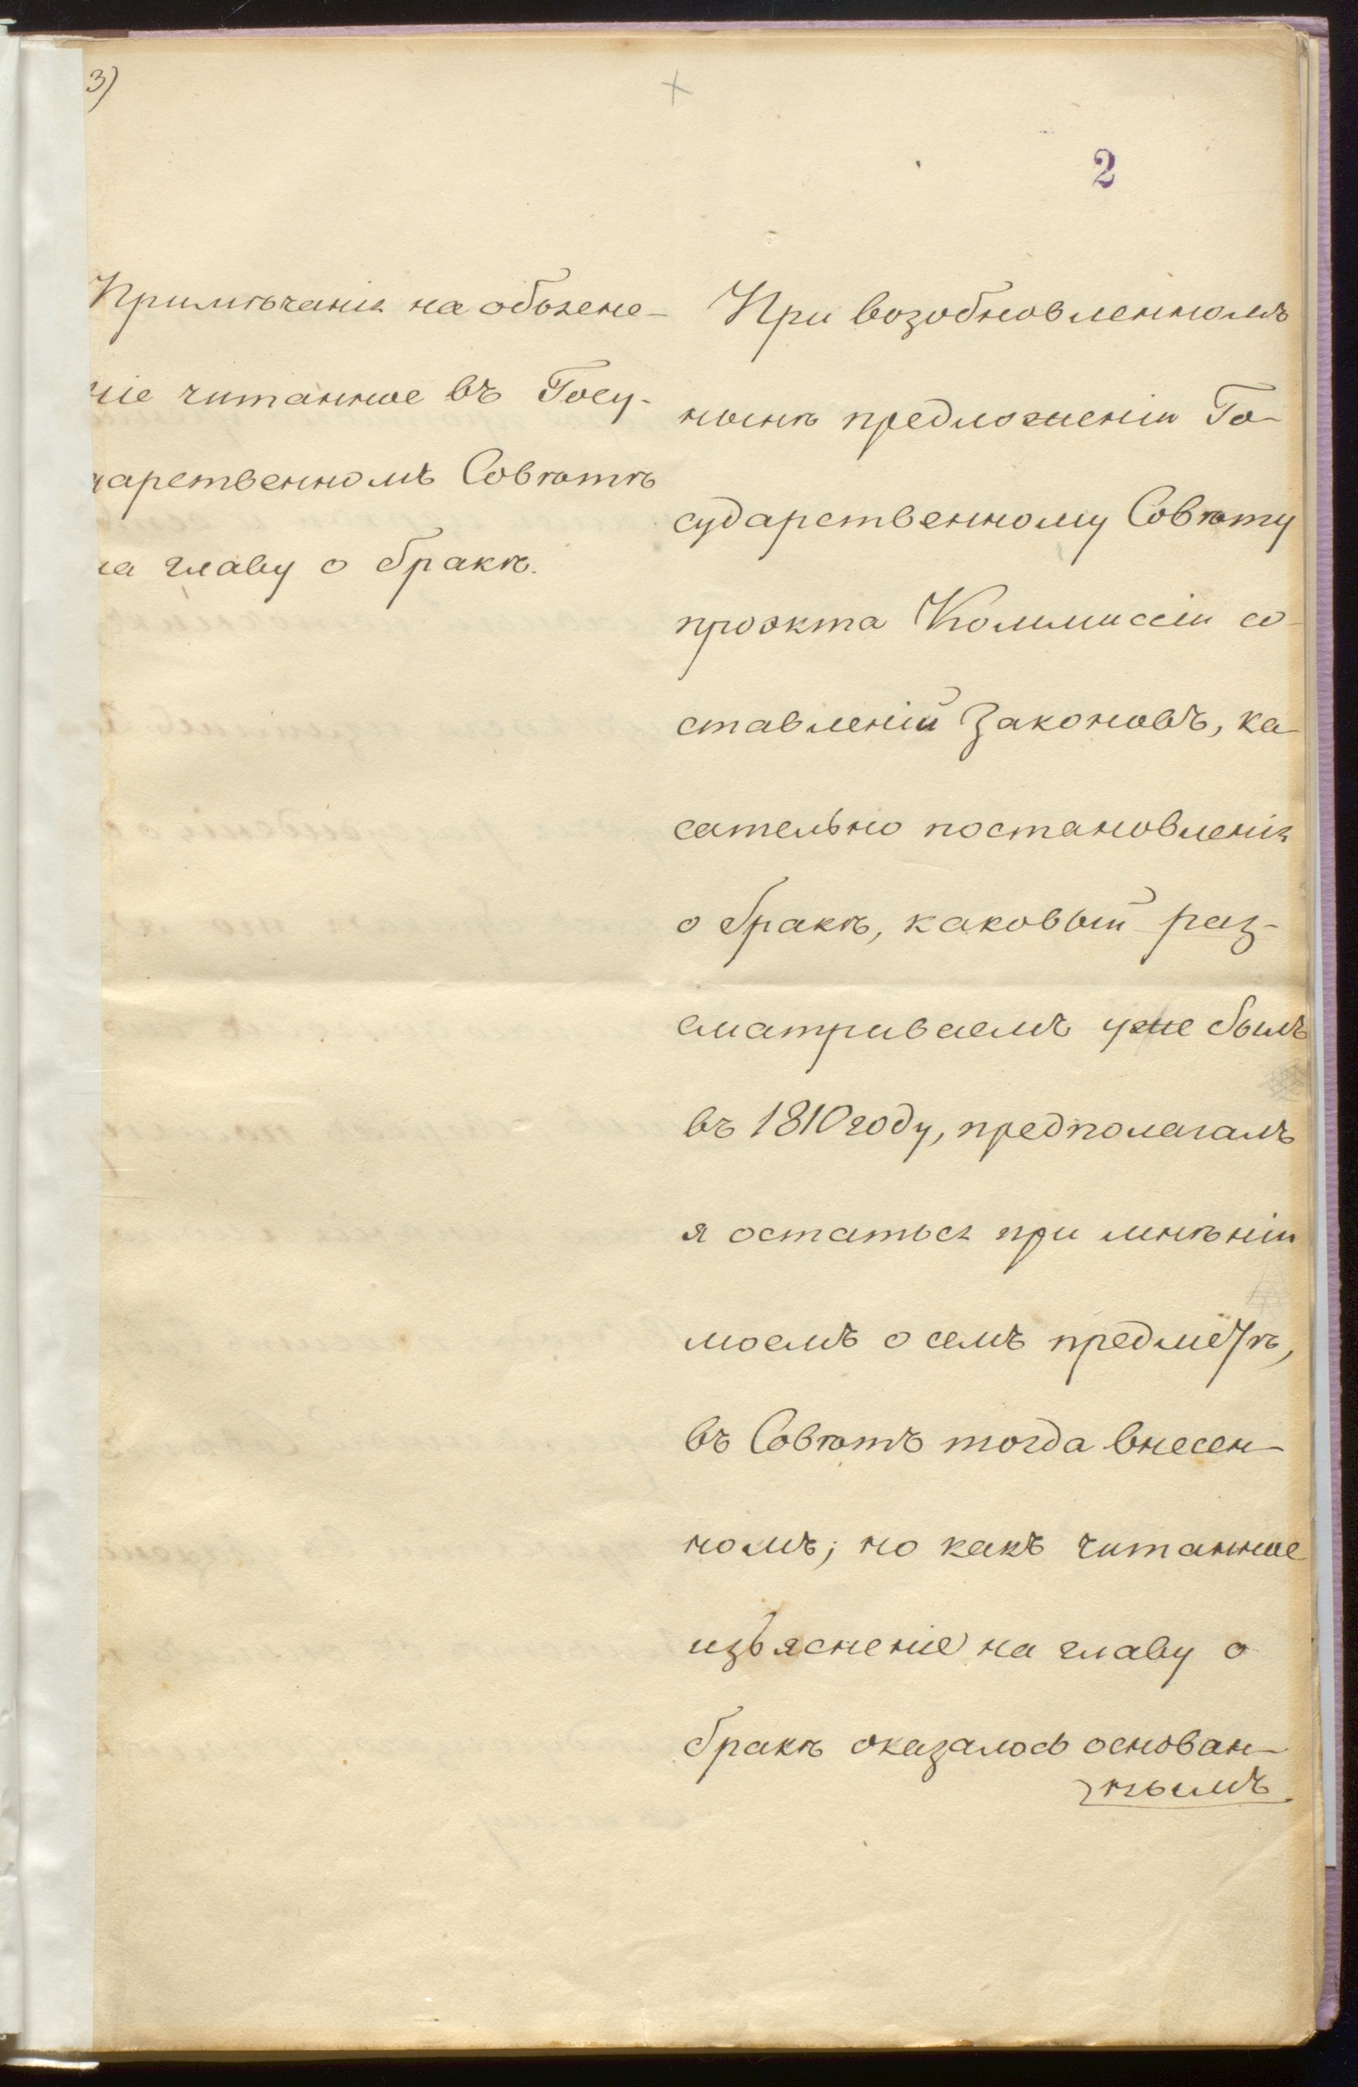 3)
2
Примѣчанія на объясне-
ніе читанное въ Госу-
дарственномъ Совѣтѣ
на главу о бракѣ.
При возобновленномъ
нынѣ предложеніи Го-
сударственному Совѣту
проэкта Коммиссіи со-
ставленій Законовъ, ка-
сательно постановленія
о бракѣ, каковый раз-
сматриваемъ уже былъ
въ 1810 году, предполагалъ
я остаться при мнѣніи
моемъ о семъ предметѣ,
въ Совѣтъ тогда внесен-
номъ; но какъ читанное
изъясненіе на главу о
бракѣ оказалось основан-
нымъ